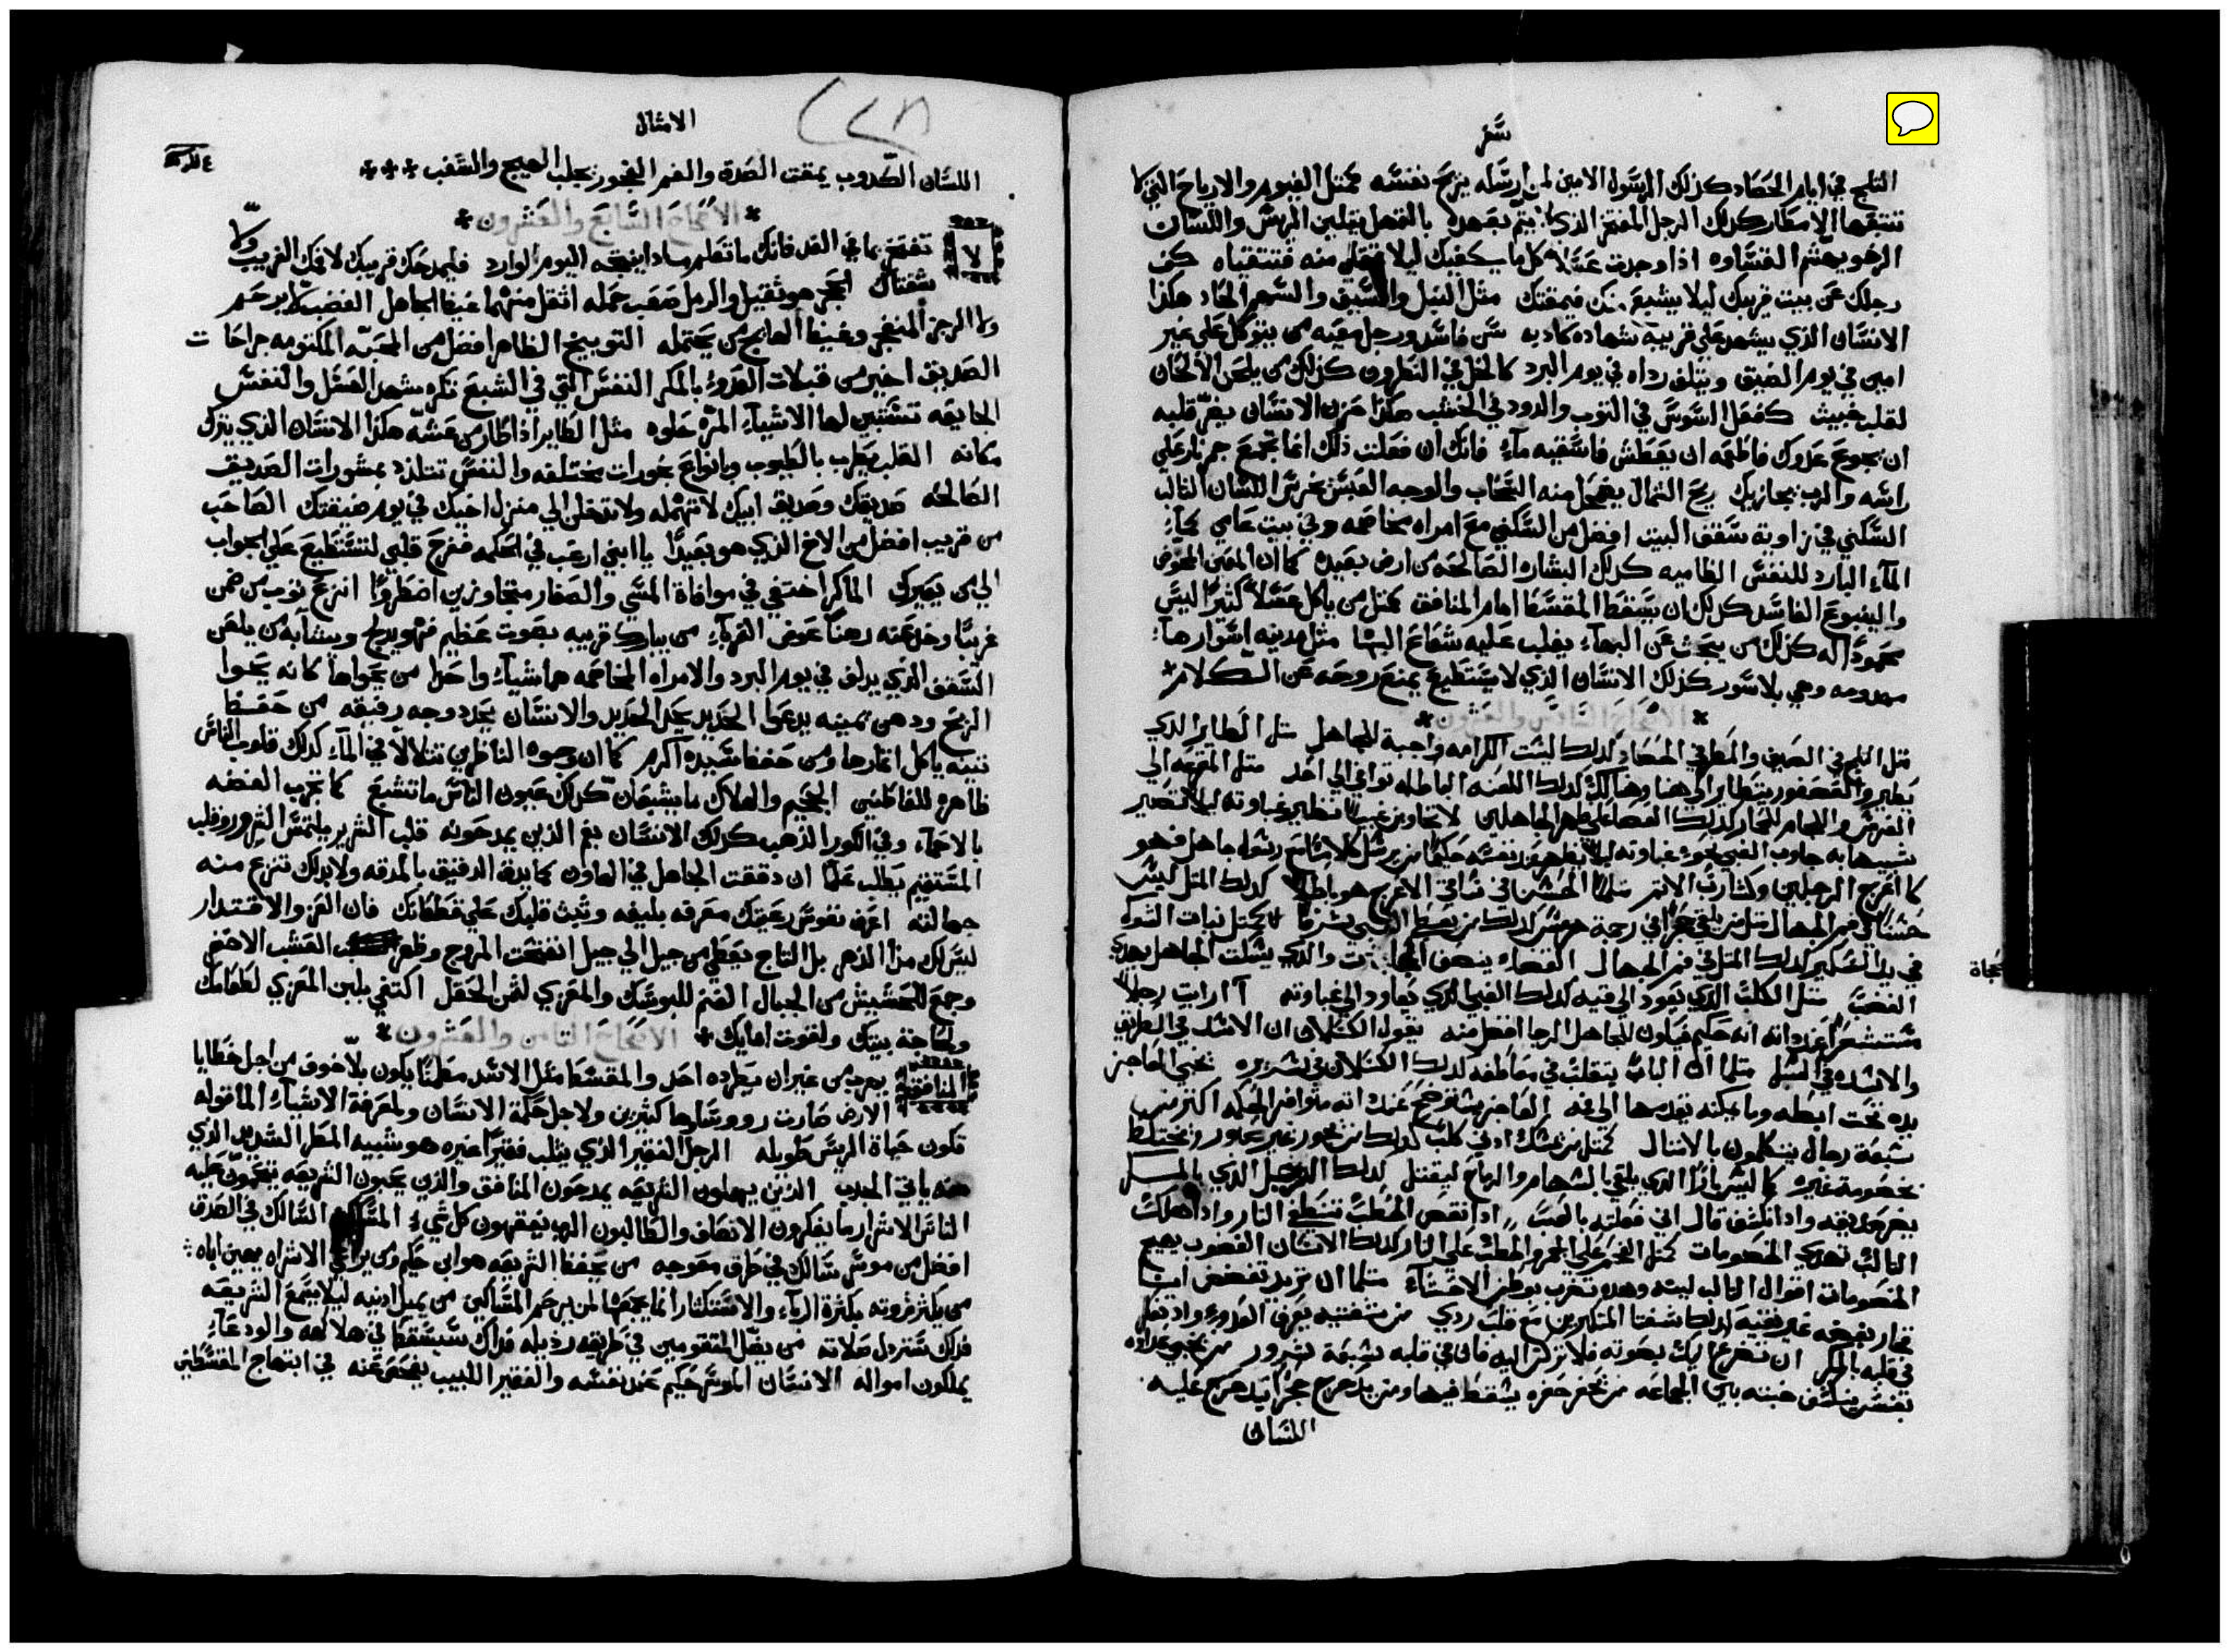 سفر
الثلج في ايام الحصاد كذلك الرسول الامين لمن ارسله يريح نفسه كمثل الغيوم والارياح التي لا
تتبعها الامطار كذلك الرجل المفتخر الذي لا يتم بعهده بالمهل يتلين الريس واللسان
الرخو يهشم القساوه اذا وجدت عسلاً كل ما يكفيك ليلا تمتلي منه فتتقياه كف
رجلك عن بيت قريبك ليلا يشبع منك فيمقتك مثل النبل والسيف والسهم الحاد هكذا
الانسان الذي يشهد علي قريبه شهاده كاذبه سن فاسد ورجل معيبه من يتوكل علي غير
امين في يوم الضيق ويتلف رداه في يوم البرد كالخل في النطرون كذلك من يلحن الالحان
لقلب خبيث كفعل السوس في الثوب والدود في الخشب هكذا حزن الانسان يضر قلبه
ان يجوع عدوك فاطعمه ان يعطش فاسقيه ماءً فانك ان فعلت ذلك انما تجمع جمر نار علي
راسه والرب يجازيك ريح الشمال يضمحل منه السحاب والوجه العبس يخرس اللسان الثالب
السكني في زاوية سقف البيت افضل من السكني مع امراه مخاصمه وفي بيت عامي كماء
الماء البارد للنفس الظاميه كذلك البشاره الصالحه من ارض بعيده كما ان المعين المخوض
والينبوع الفاسد كذلك ان يسقط المقسط امام المنافق كمثل من ياكل عسلاً كثيراً ليس
محموداً له كذلك من يبحث عن البهاء يغلب عليه شعاع البها مثل مدينه اسوارها
مهدومه وهي بلا سور كذلك الانسان الذي لا يستطيع يمنع روحه عن الكلام
الاصحاح السادس والعشرون
مثل الثلج في الصيف والمطر في الحصاد كذلك ليست الكرامه واجبة للجاهل مثل الطاير الذي
يطير والعصفور يتطاير الي هنا وهناك كذلك اللعنه الباطله توافي الي احد مثل المقرعه الي
الفرس واللجام للحمار كذلك العصا علي ظهر الجاهلين لا تجاوب غبياً نظير غباوته ليلا تصير
شبيها به جاوب الغبي نحو غباوته ليلا يظهر عند نفسه حكيما من يرسل كلامًا مع رسول جاهل فهو
كاعرج الرجلين وكشارب الاثم مثلما الحسن في ساقي الاعرج هو باطلاً كذلك المثل ليس
حسناً في فم الجهال مثل من يلقي حجراً في رجمة هرمس كذلك من يعطي الغبي شرفا كمثل نبات الشوك
في يد السكير كذلك المثل في فم الجهال القضاء ينصف والذي يسكت الجاهل يهدي
الغضب مثل الكلب الذي يعود الي قيه كذلك الغبي الذي يعاود الي غباوته أارايت رجلاً
مستشعراً عند ذاته انه حكيم فيكون للجاهل الرجا افضل منه يقول الكسلان ان الاسد في الطريق
والاسده في السبل مثلما ان الباب يتقلب في معاطفه كذلك الكسلان في سريره يخبي العاجز
يده تحت ابطه وما يمكنه تقديمها الي فمه العاجز يستوضح عنده انه متوافر الحكمه اكثر من
سبعة رجال يتكلمون بالامثال كمثل من يمسك اذني كلب كذلك من يجوز غير محاور ويختلط
بخصومة غيره كما ليس بارا الذي يلقي بالسهام والرماح ليقتل كذلك الرجل الذي بالمكر
يضر صديقه واذا انكشف قال اني فعلته بالعبث اذا نقص الحطب تنطفي النار واذا هلك
الثالب تهدي الخصومات كمثل الفحم علي الجمر والحطب علي النار كذلك الانسان الغضوب يهيج
الخصومات اقوال الثالب لينه وهذه تضرب بواطن الاحشاء مثلما ان تريد تفضض انيه
فخار بفضه غير نقيه كذلك شفتا المتكبرين مع قلب ردي من شفتيه يعرف العدو واذ يعمل
في قلبه بالمكر ان تضرع اليك بصوته فلا تركن اليه فان في قلبه سبعة شرور من يخبي عداوه
بغش ينكشف خبثه بين الجماعه من يحفر حفره يسقط فيها ومن يدحرج حجراً يتدحرج عليه
اللسان
نجاة
الامثال
٢٢٨
اللسان الكدوب يمقت الصدق والفم الفجور يجلب الهيج والشغب
الاصحاح السابع والعشرون
لا تفتخر بما في الغد فانك ما تعلم ماذا ينتجه اليوم الوارد فليمدحك قريبك لا فمك الغريب ولا
شفتاك الحجر هو ثقيل والرمل صعب حمله اثقل منهما غيظ الجاهل الغضب لا يرحم
ولا الرجز المنفجر وغيظ الهايج من يحتمله التوبيخ الظاهر افضل من المحبه المكتومه جراحات
الصديق اخير من قبلات العدو بالمكر النفس التي في الشبع تكره شهد العسل والنفس
الجايعه تستبين لها الاشياء المره حلوه مثل الطاير اذا طار من عشه هكذا الانسان الذي يترك
مكانه القلب يطرب بالطيوب وبانواع بخورات مختلفه والنفس تتلذذ بمشورات الصديق
الصالحه صديقك وصديق ابيك لا تهمله ولا تدخل الي منزل اخيك في يوم ضيقتك الصاحب
من قريب افضل من الاخ الذي هو بعيداً يا ابني ارغب في الحكمه ففرح قلبي لتستطيع علي الجواب
الي من يعيرك الماكر اختفي في موافاة المشي والصغار متجاوزين اضطروا انزع ثوب من ضمن
غريباً وخذ عنه رهناً عوض القرباء من يبارك قريبه بصوت عظيم فهو يدلج ويشابه من يلعن
السقف الذي يدلف في يوم البرد والامراه المخاصمه هما شياء واحدا من يحواها كانه يحوا
الريح ودهن يمينه يدعوا الحديد يحد الحديد والانسان يحدد وجه رفيقه من حفظ
تينه ياكل اثمارها ومن حفظ سيده اكرم كما ان وجوه الناظرين تتلالا في الماء كذلك قلوب الناس
ظاهره للفاطنين الجحيم والهلاك ما يشبعان كذلك عيون الناس ما تشبع كما تجرب الفضه
بالاحماء وفي الكور الذهب كذلك الانسان بفم الذين يمدحونه قلب الشرير يلتمس الشرور وقلب
المستقيم يطلب علماً ان دققت الجاهل في الهاون كما يدق الدقيق بالمدقه ولا بذلك تنزع منه
جهالته اعرف نفوس رعيتك معرفه بليغه وثبت قلبك علي قطعانك فان العز والاقتدار
ليس لك مدا الدهر بل التاج يعطي من جيل الي جيل انفتحت المروج وظهر العشب الاخضر
وجمع الحشيش من الجبال الغنم للبوسك والمعزي لثمن الحقل اكتفي بلبن المعزي لطعامك
ولحاجة بيتك ولقوت امايك الاصحاح الثامن والعشرون
المنافق يهرب من غير ان يطرده احد والمقسط مثل الاسد مطمئاً يكون بلا خوف من اجل خطايا
الارض صارت روساها كثيرين ولاجل حكمة الانسان ولمعرفة الاشياء المقوله
تكون حياة الريس طويله الرجل الفقير الذي يثلب فقيراً غيره هو شبيه المطر الشديد الذي
عنه ياتي الجدب الذين يهملون الشريعه يمدحون المنافق والذين يحبون الشريعه يتحمون عليه
الناس الاشرار ما يفكرون الانصاف والطالبون الرب يفهمون كل شي المسكين السالك في الصدق
افضل من موسر سالك في طرق معوجه من يحفظ الشريعه هو ابن حكيم ومن يراعي الاشراه يهين اباه
من يكثر ثروته بكثرة الرباء والاستكثار انما يجمعها لمن يرحم المساكين من يميل اذنيه ليلا يسمع الشريعه
فذلك سترذل صلاته من يضل المتقومين في طريقه رذيله فذاك سيسقط في هلاكه والودعاء
يملكون امواله الانسان الموسر حكيم عند نفسه والفقير اللبيب يفحص عنه في ابتهاج المقسطين